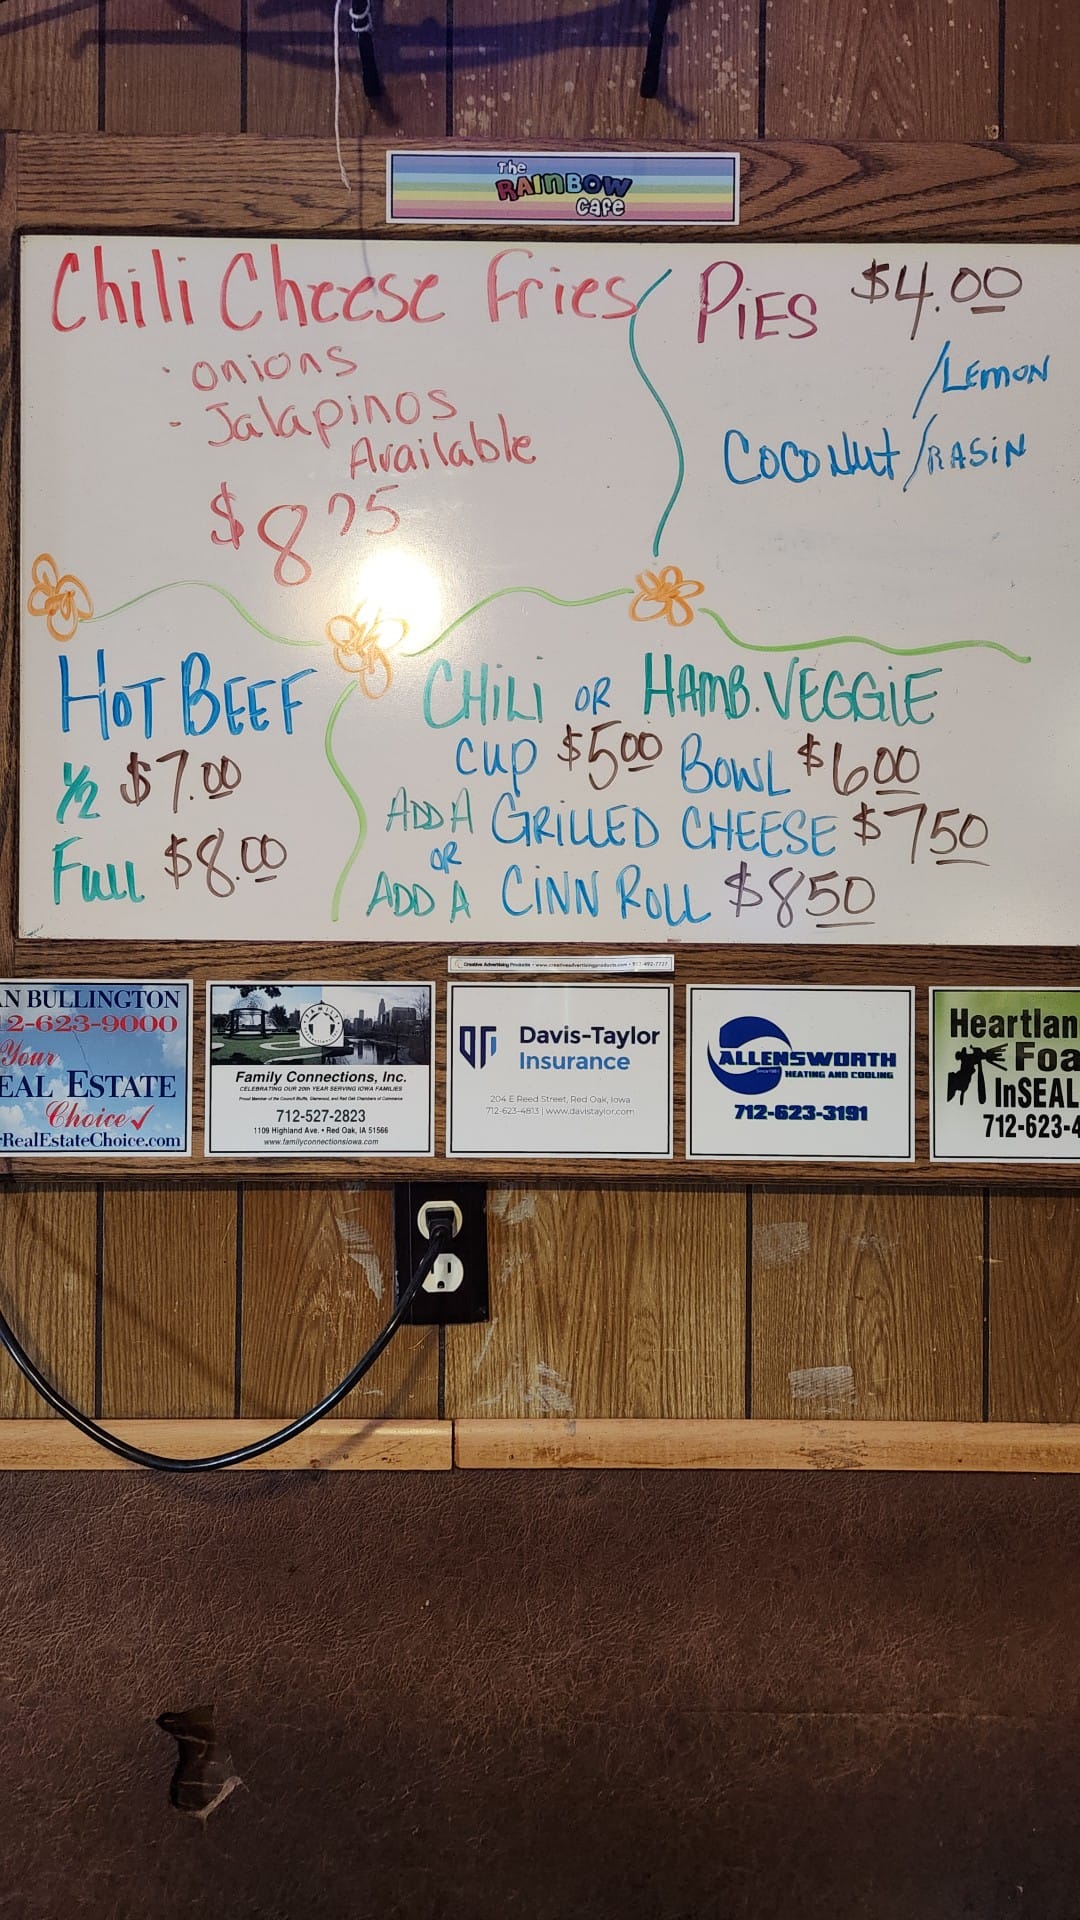 The
RAINBOW
Cafe
Chili Cheese Fries
· onions
- Jalapinos
Available
$8 75
PiES $4.00
/LEMON
COCONUT/RASiN
HOT BEEF
1/2 $7.00
Full $8.00
CHiLi OR HAMB. VEGGiE
CUP $5 00 BOWL $6 00
ADD A GRiLLED CHEESE $7 50
OR
ADD A CiNN ROLL $8 50
Creative Advertising Products • www.creativeadvertisingproducts.com •
AN BULLINGTON
12-623-9000
Your
EAL ESTATE
Choice
rRealEstateChoice.com
FAMILY
Family Connections, Inc.
CELEBRATING OUR 20th YEAR SERVING IOWA FAMILIES
Proud Member of the Council Bluffs, Glenwood, and Red Oak Chambers of Commerce
712-527-2823
1109 Highland Ave. • Red Oak, IA 51566
www.familyconnectionsiowa.com
Davis-Taylor
Insurance
204 E Reed Street, Red Oak, Iowa
712-623-4813 | www.davistaylor.com
ALLENSWORTH
HEATING AND COOLING
712-623-3191
Heartlan
Foa
InSEAL
712-623-4